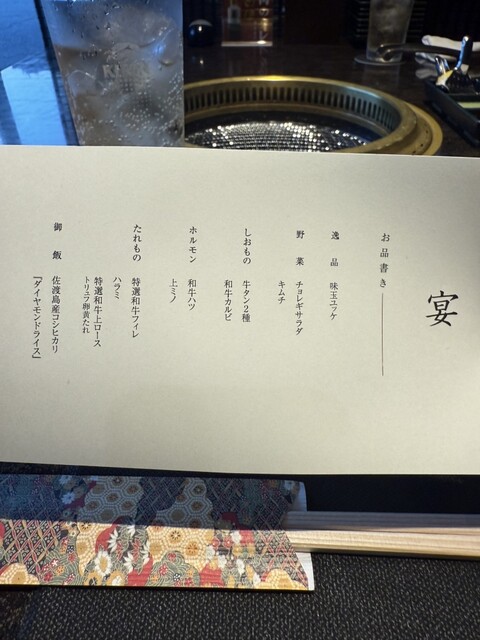 宴
お品書き
逸品 味玉ユッケ
野菜 チョレギサラダ
キムチ
しおもの 牛タン2種
和牛カルビ
ホルモン 和牛ハツ
上ミノ
たれもの 特選和牛フィレ
ハラミ
特選和牛上ロース
トリュフ卵黄たれ
御飯 佐渡島産コシヒカリ
『ダイヤモンドライス』